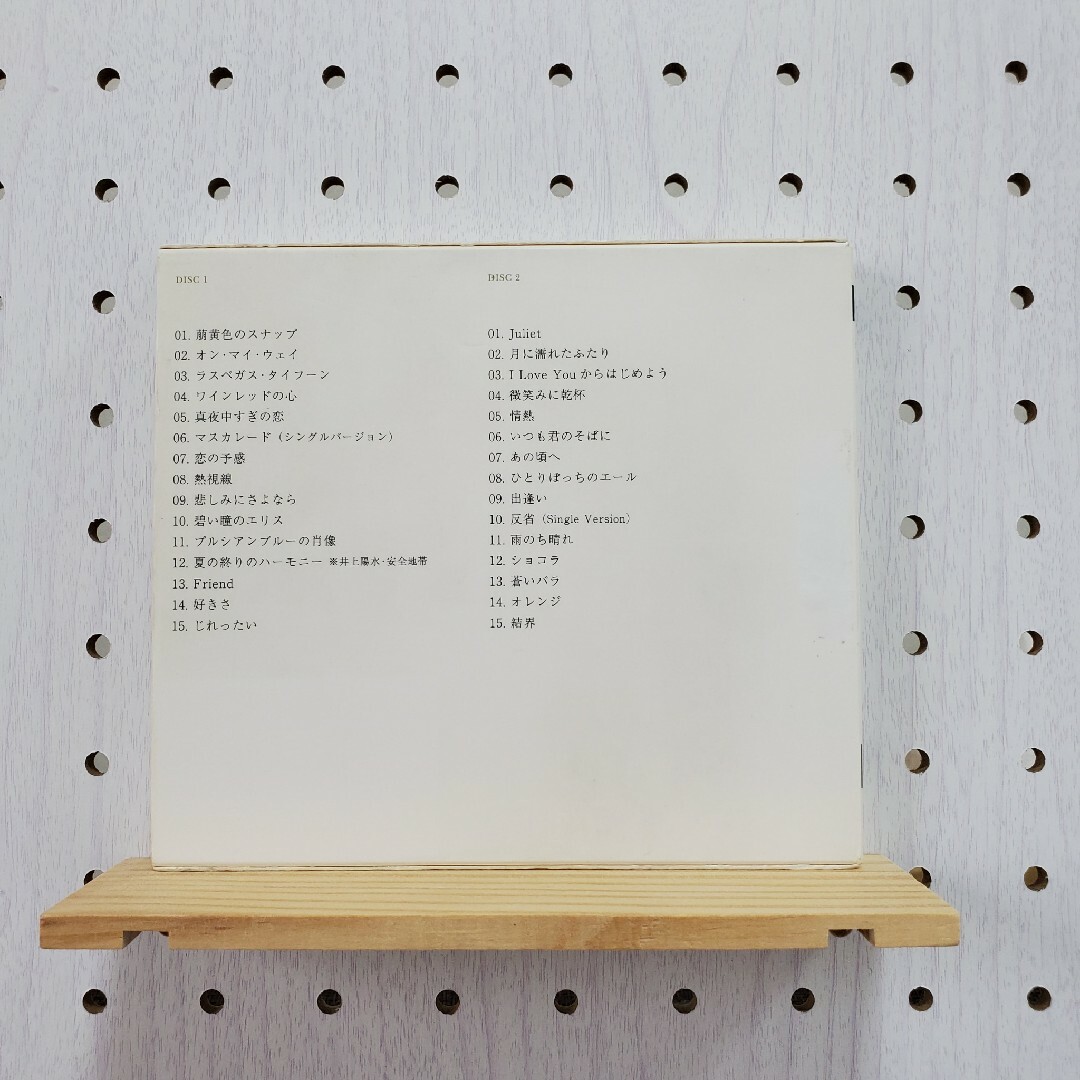 DISC 1
01. 萠黄色のスナップ
02. オン・マイ・ウェイ
03. ラスベガス・タイフーン
04. ワインレッドの心
05. 真夜中すぎの恋
06. マスカレード (シングルバージョン)
07. 恋の予感
08. 熱視線
09. 悲しみにさよなら
10. 碧い瞳のエリス
11. プルシアンブルーの肖像
12. 夏の終りのハーモニー ※井上陽水・安全地帯
13. Friend
14. 好きさ
15. じれったい
DISC 2
01. Juliet
02. 月に濡れたふたり
03. I Love Youからはじめよう
04. 微笑みに乾杯
05. 情熱
06. いつも君のそばに
07. あの頃へ
08. ひとりぼっちのエール
09. 出逢い
10. 反省 (Single Version)
11. 雨のち晴れ
12. ショコラ
13. 蒼いバラ
14. オレンジ
15. 結界